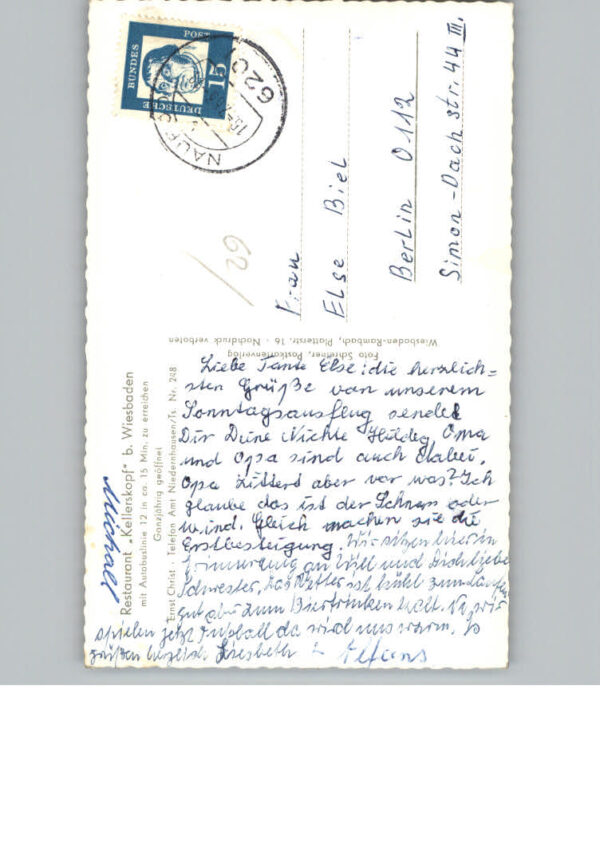 DEUTSCHE
BUNDES
POST
15
6201
29
Frau
Else Biel
Berlin 0112
Simon-Dach str. 44 III.
Foto Schreiner, Postkartenverlag
Wiesbaden-Rambach, Platterstr. 16 · Nachdruck verboten
Restaurant „Kellerskopf" b. Wiesbaden
mit Autobuslinie 12 in ca. 15 Min. zu erreichen
Ganzjährig geöffnet
Ernst Christ · Telefon Amt Niedernhausen/Ts. Nr. 248
Liebe Tante Else: die herzlich=
sten Grüße von unserem
Sonntagsausflug sendet
Dir Deine Nichte Hildeg, Oma
und Opa sind auch dabei.
Opa zittert aber vor was? Ich
glaube das ist der Schnaps oder
Wind. Gleich machen sie die
Erstbesteigung. Wir sitzen hier in
Erinnerung an Willi und Dich liebe
Schwester, das Wetter ist kühl zum Laufen
gut aber zum Biertrinken kalt. Na, wir
spielen jetzt Fußball da wird uns warm. So
grüßen herzlich Liesbeth
Michael